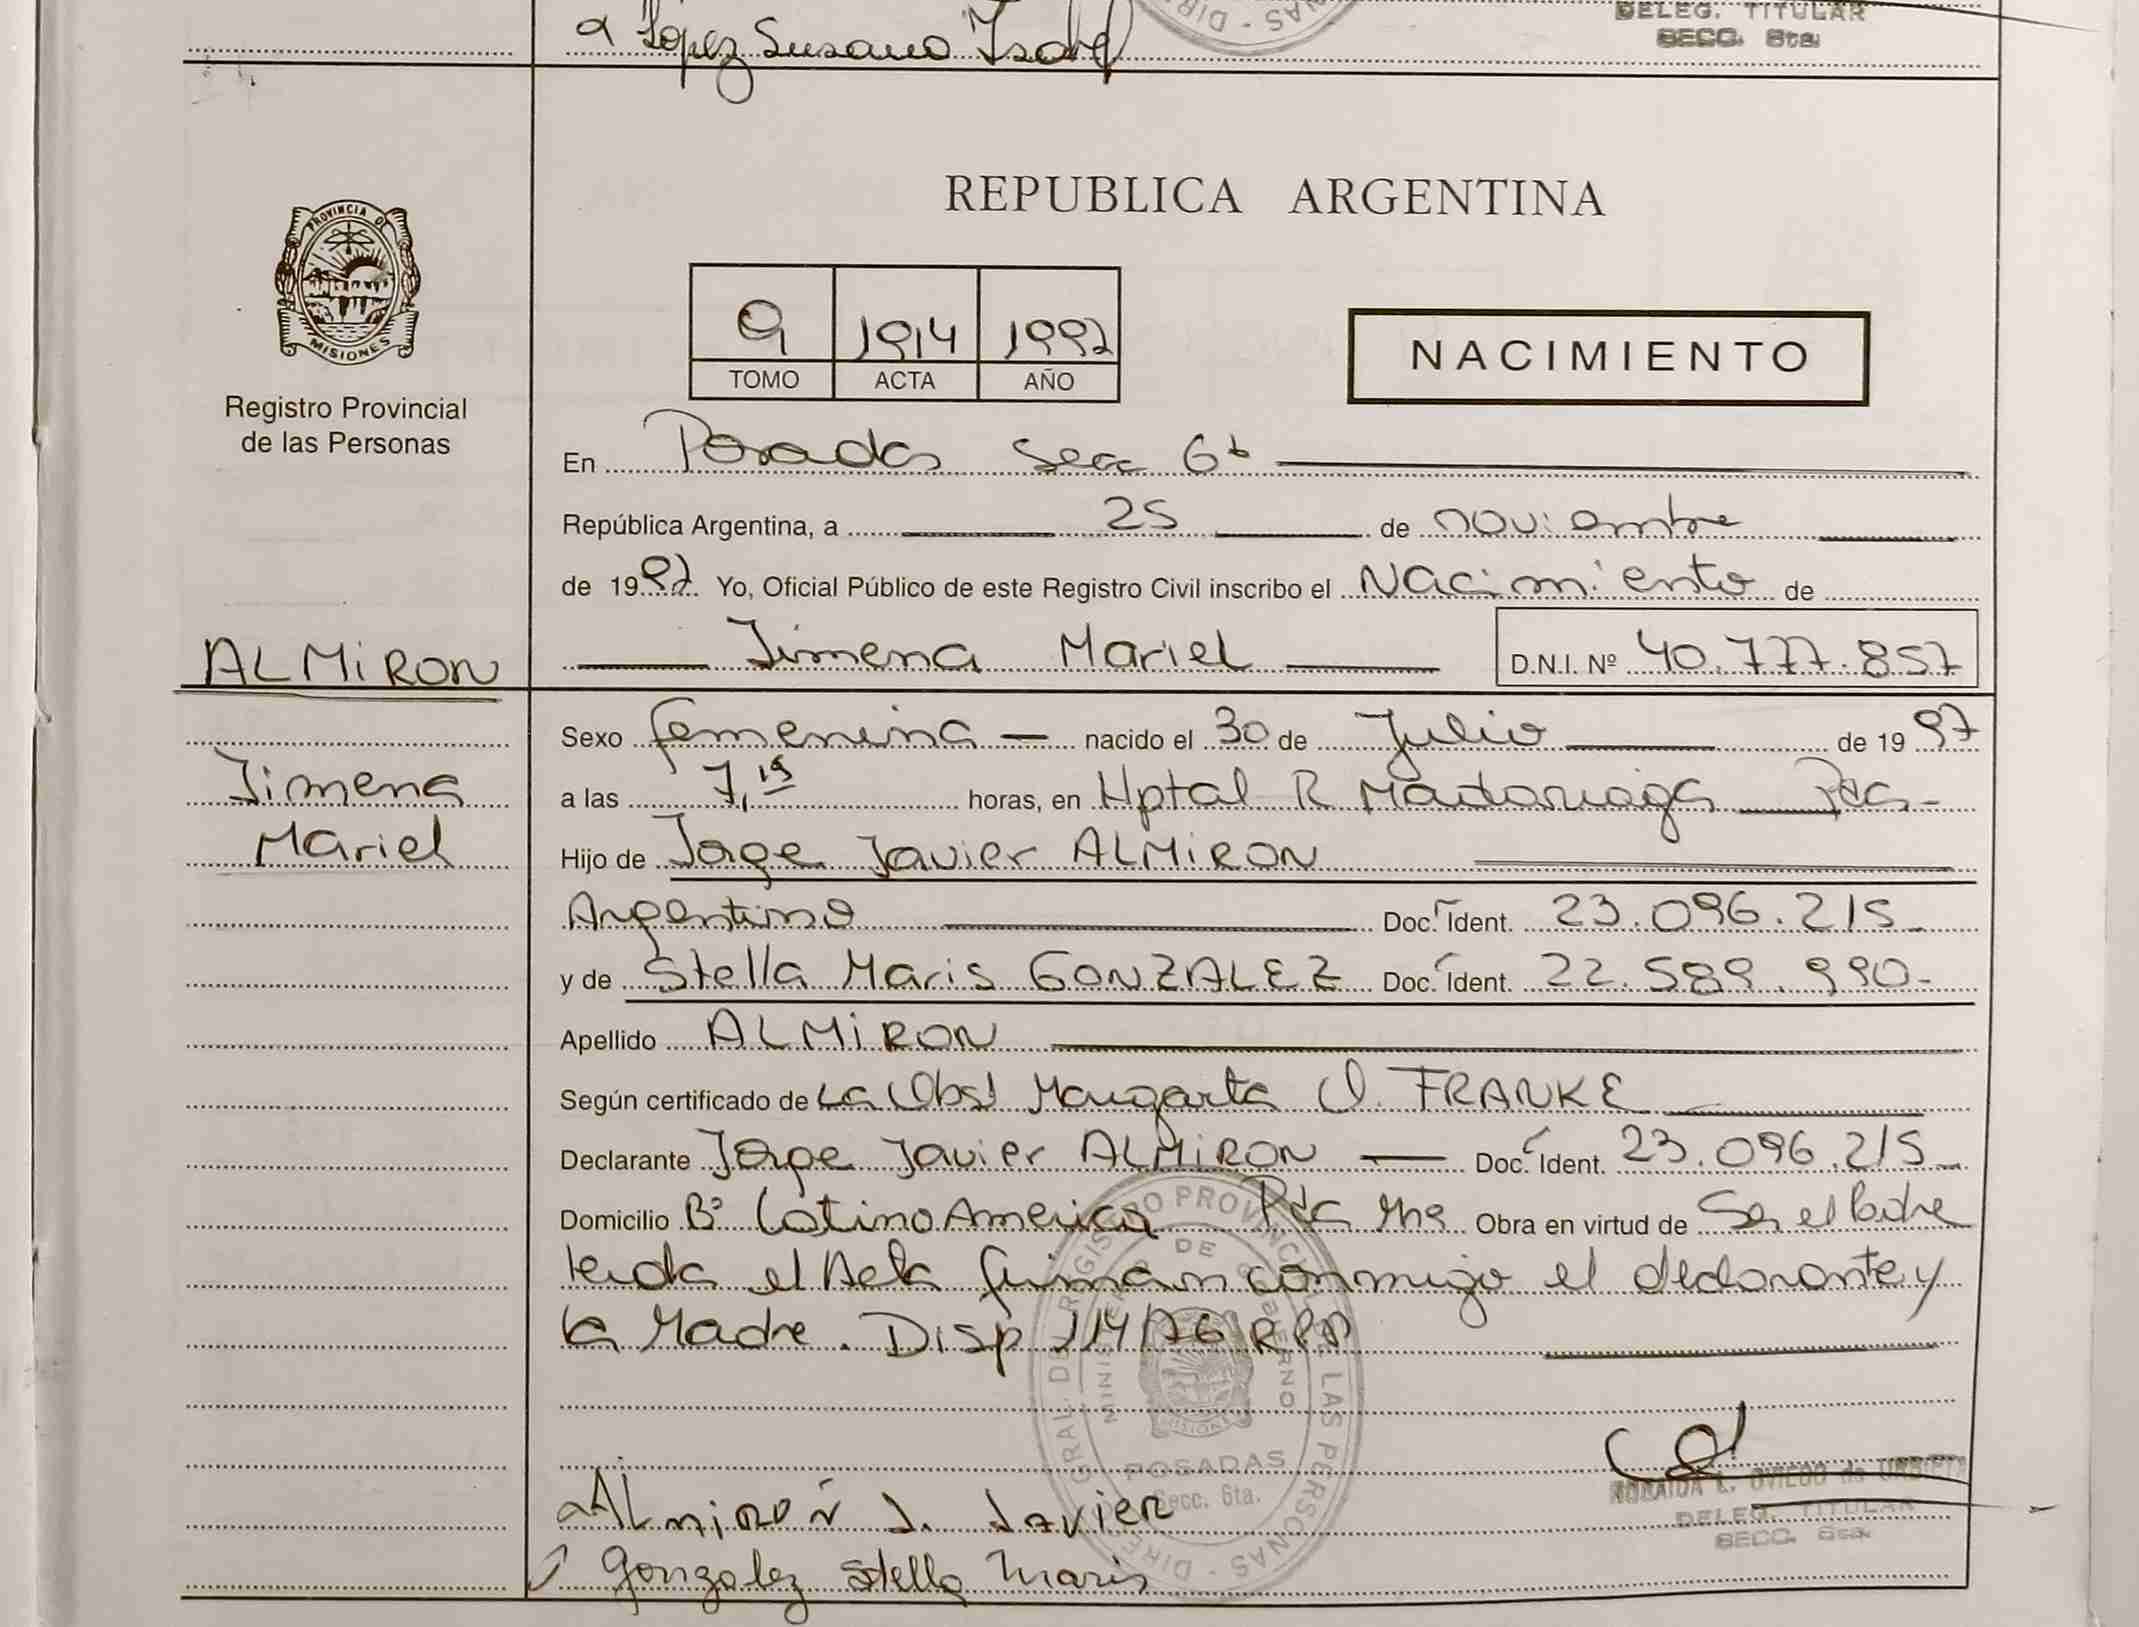 a López Susana Isabel
DELEG. TITULAR
SECC. 6ta.
PROVINCIA DE
MISIONES
Registro Provincial
de las Personas
REPUBLICA ARGENTINA
9 1914 1997
TOMO ACTA AÑO
NACIMIENTO
En Posadas Secc 6ta
República Argentina, a 25 de noviembre
de 1997 Yo, Oficial Público de este Registro Civil inscribo el Nacimiento de
Jimena Mariel D.N.I. Nº 40.777.857
ALMiRON
Jimena
Mariel
Sexo femenina nacido el 30 de Julio de 1997
a las 7,15 horas, en Hptal R Madariaga Pdas
Hijo de Jorge Javier ALMiRON
Argentino Doc. Ident. 23.096.215
y de Stella Maris GONZALEZ Doc. Ident. 22.589.990
Apellido ALMiRON
Según certificado de La Obst Margarita FRANKE
Declarante Jorge Javier ALMiRON Doc. Ident. 23.096.215
Domicilio Bº LatinoAmerica Pdas Mnes Obra en virtud de Ser el Padre
leida el Acta firman conmigo el declarante y
la Madre. Disp
DIRE GRAL. DE REGISTRO PROVINCIAL DE LAS PERSONAS
MINISTERIO DE GOBIERNO
MISIONES
POSADAS
Secc. 6ta.
OVIEDO de URBIETA
DELEG. TITULAR
SECC. 6ta.
ALmiROÑ J. JavieR
Gonzalez Stella Maris